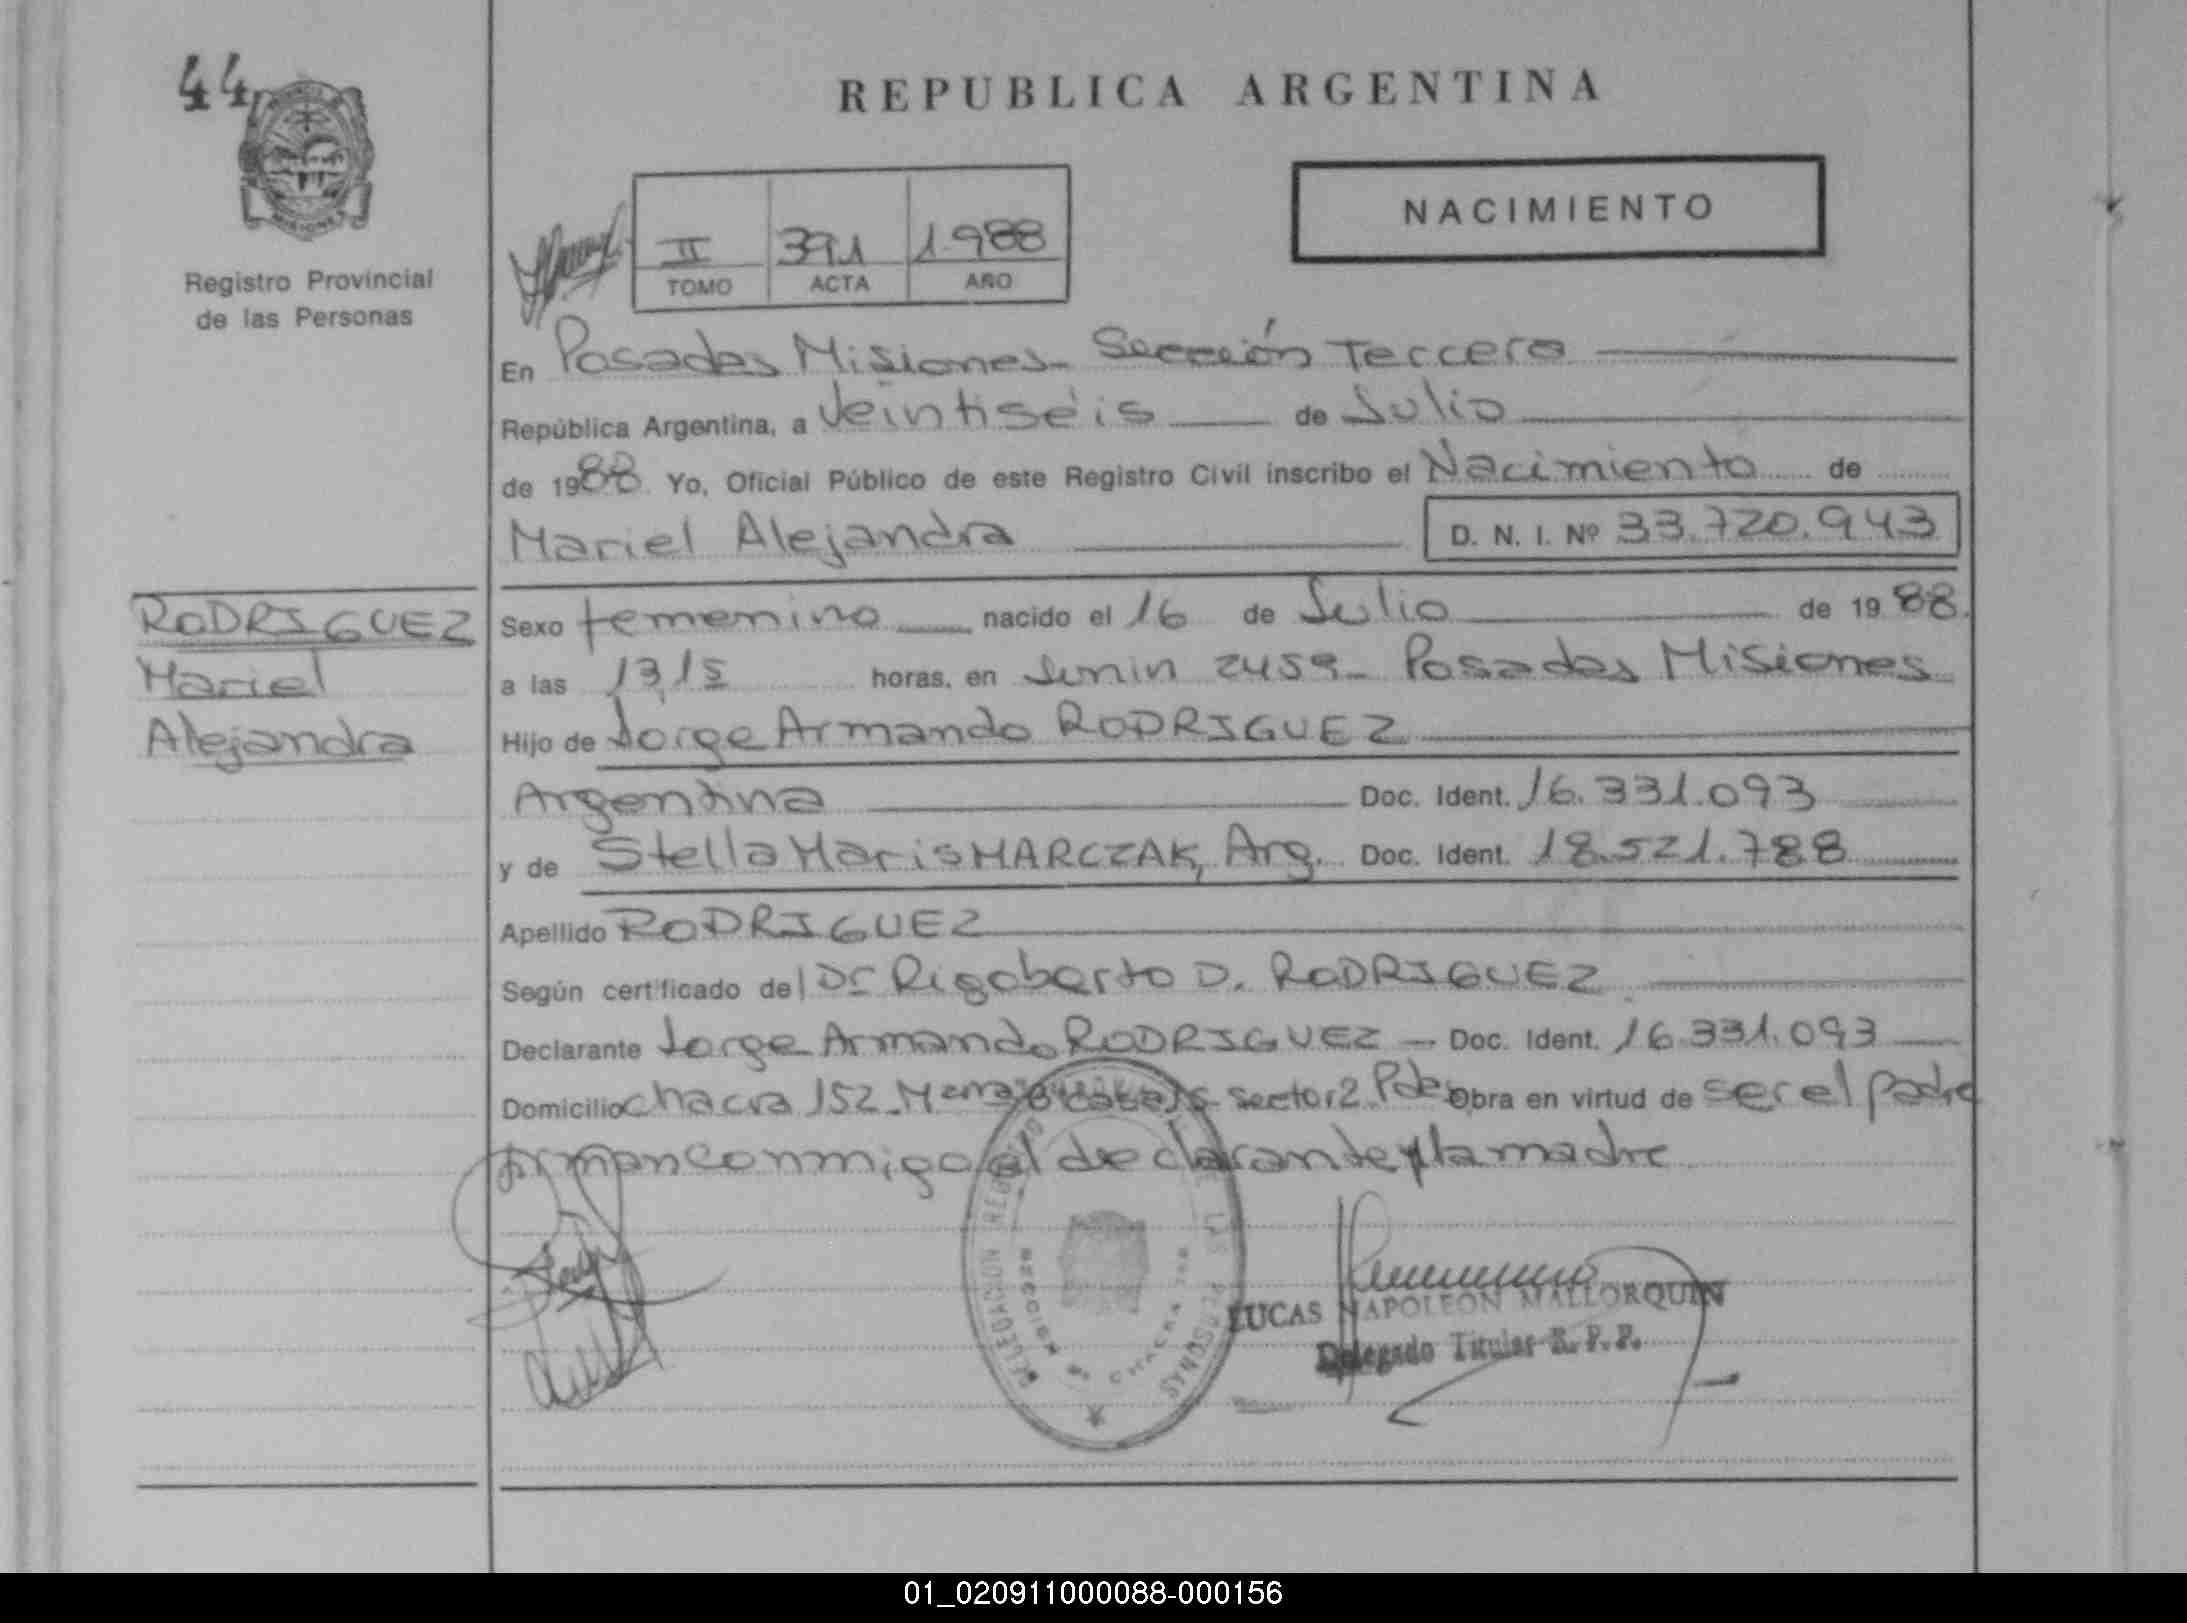 44
REPUBLICA ARGENTINA
NACIMIENTO
II 391 1.988
TOMO ACTA AÑO
Registro Provincial
de las Personas
En Posadas Misiones- Sección Tercera
República Argentina, a Veintiséis de Julio
de 1988. Yo, Oficial Público de este Registro Civil inscribo el Nacimiento de
Mariel Alejandra D. N. I. Nº 33.720.943
RODRIGUEZ
Mariel
Alejandra
Sexo femenino nacido el 16 de Julio de 1988.
a las 13,15 horas, en Junin 2459- Posadas Misiones
Hijo de Jorge Armando RODRIGUEZ
Argentina Doc. Ident. 16.331.093
y de Stella Maris MARCZAK, Arg. Doc. Ident. 18.521.788
Apellido RODRIGUEZ
Según certificado del Dr Rigoberto D. RODRIGUEZ
Declarante Jorge Armando RODRIGUEZ - Doc. Ident. 16.331.093
Domicilio chacra 152- sector 2. Pdas Obra en virtud de ser el padre
firman conmigo el declarante y la madre
DELEGACION REGISTRO LAS PERSONAS
SECCION CHACRA
LUCAS NAPOLEON MALLORQUIN
Delegado Titular R.P.P.
01_020911000088-000156